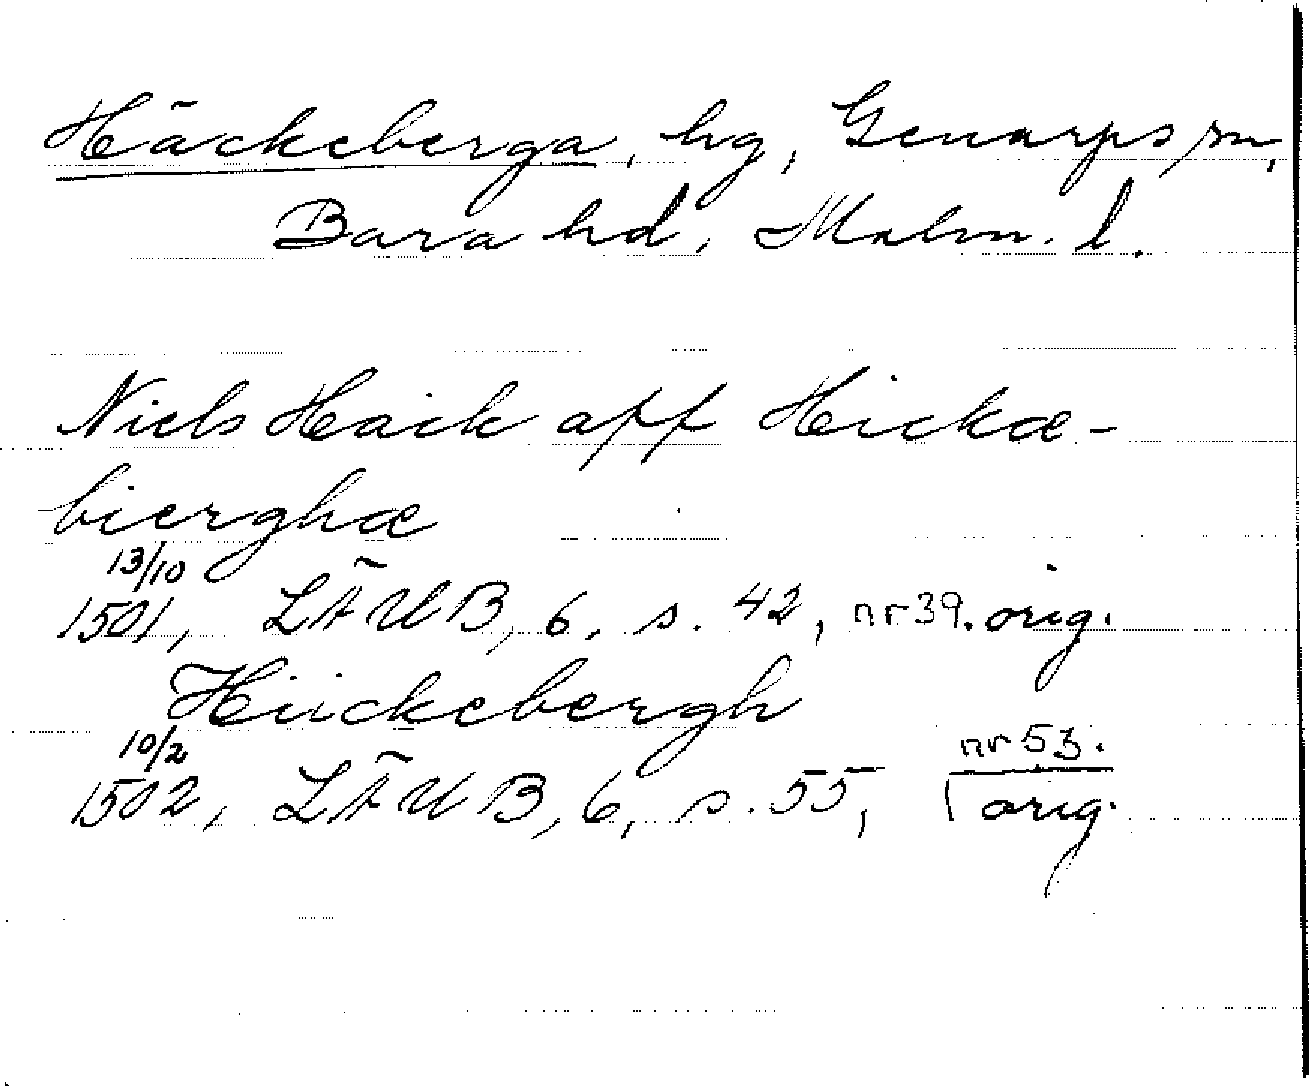 Häckeberga, hg, Genarps sn,
Bara hd, Malm. l.
Niels Haick aff Heickæ-
bierghæ
13/10
1501, LÄUB, 6, s. 42, nr 39. orig.
Hiickebergh
10/2
nr 53.
1502, LÄUB, 6, s. 55, orig.